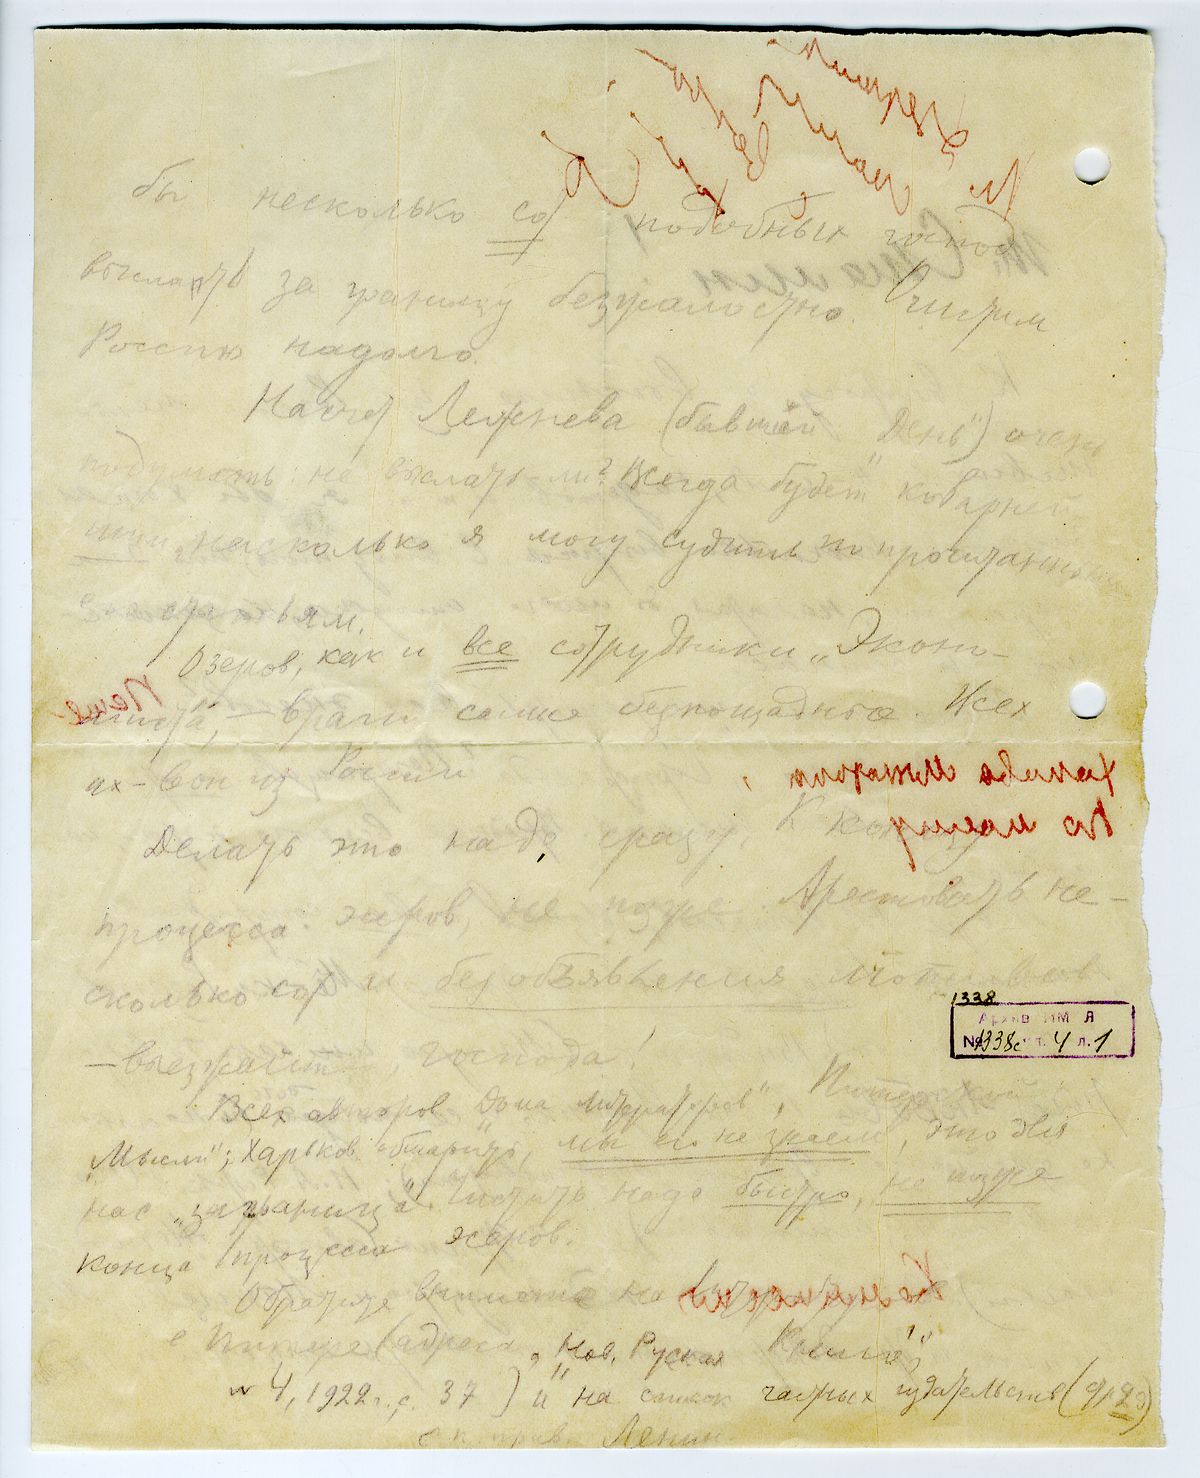 бы несколько сот подобных господ
выслать за границу безжалостно. Очистим
Россию надолго.
Насчет Лежнева (бывший „День“) очень
подумать: не выслать ли? Всегда будет коварней-
шим, насколько я могу судить по прочитанным
статьям.
Озеров, как и все сотрудники „Эконо-
миста“, – враги самые беспощадные. Всех
их – вон из России
Делать это надо сразу. К концу
процесса эсеров, не позже. Арестовать не-
сколько сот и без объявления мотивов
– выезжайте, господа!
Всех авторов „Дома литераторов“, Питерской
„Мысли“; Харьков обшарить, мы его не знаем, это для
нас „заграница“. Чистить надо быстро, не позже
конца процесса эсеров.
Обратите внимание на литераторов
в Питере (адреса „Нов. Руская Книга“,
№ 4, 1922 г. с. 37) и на список частных издательств (стр. 29)
с к. прив. Ленин
1338
Архив ИМЭЛ
№ 1338 с т. 4 л. 1